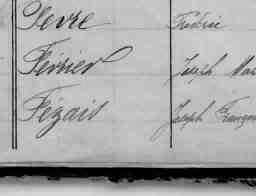 Fevre Frédéric
Février Joseph Mar
Fézais Joseph Franço